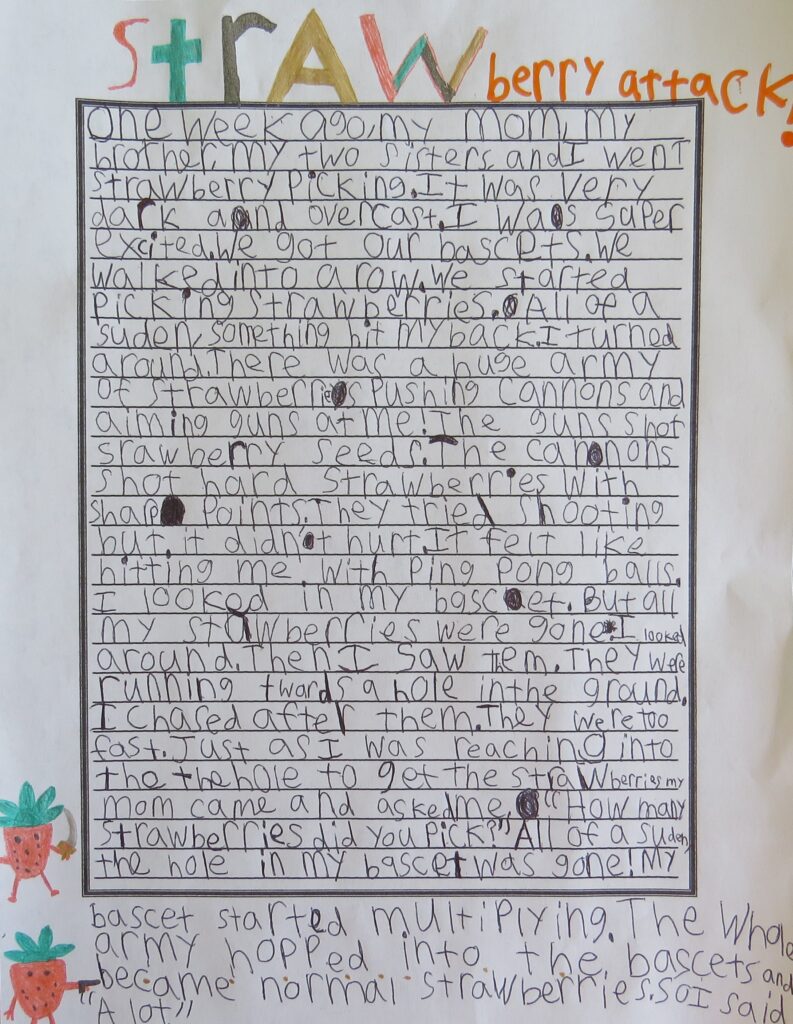 StRAWberry attack!
One week ago, my mom, my
brother, my two sisters and I went
strawberry picking. It was very
dark aand overcast. I was saper
excited. We got our bascets. We
walked into a row. We started
picking strawberries. All of a
suden, something hit my back. I turned
around. There was a huge army
of strawberries pushing cannons and
aiming guns at me! The guns shot
srawberry seeds. The canons
shot hard strawberries with
shap points. They tried shooting
but it didn't hurt. It felt like
hitting me with ping pong balls.
I looked in my bascet. But all
my stawberries were gone. I looked
around. Then I saw them. They were
running twards a hole in the ground.
I chased after them. They were too
fast. Just as I was reaching into
the the hole to get the strawberries my
mom came and asked me, "How many
strawberries did you pick?" All of a suden,
the hole in my bascet was gone! My
bascet started multiplying. The whole
army hopped into the bascets and
became normal strawberries. So I said
"A lot."